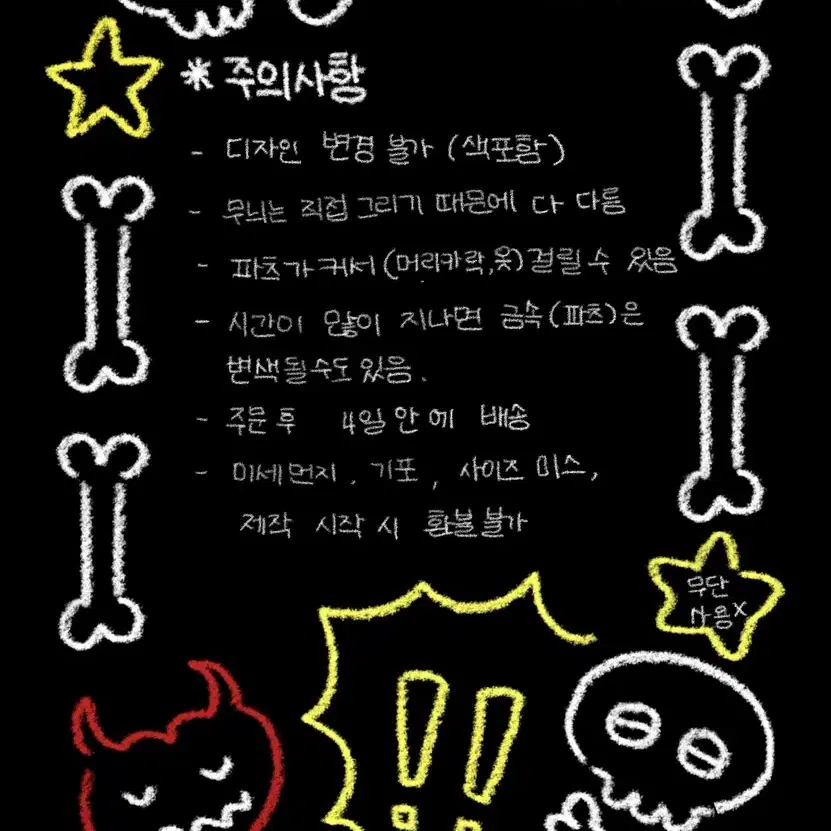 * 주의사항
- 디자인 변경 불가 (색포함)
- 무늬는 직접 그리기 때문에 다 다름
- 파츠가 커서 (머리카락, 옷) 걸릴 수 있음
- 시간이 많이 지나면 금속(파츠)은
변색될수도 있음.
- 주문 후 4일 안에 배송
- 미세먼지. 기포, 사이즈 미스,
제작 시작 시 환불불가
무단
사용X
!!